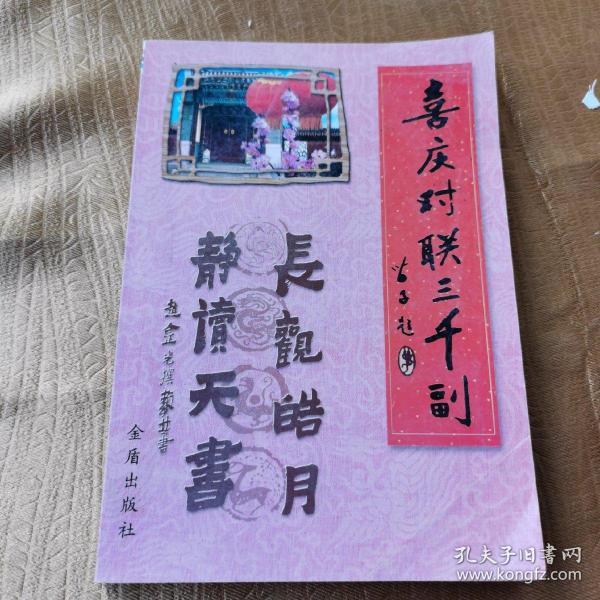 喜庆对联三千副
長觀皓月
静讀天書
金盾出版社
孔夫子旧书网
www.kongfz.com